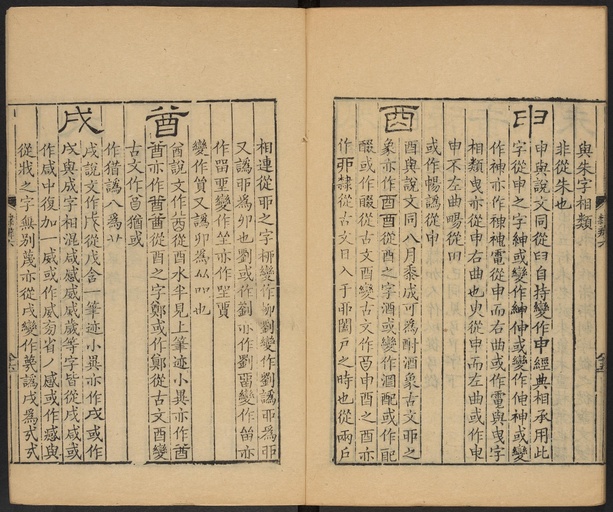 與朱字相類
非從朱也
申
申與說文同從臼自持變作申經典相承用此
字從申之字紳或變作紳伸或變作伸神或變
作神亦作神電從申而右曲或作電與曳字
相類曳亦從申右曲也㬰從申而左曲或作申
申不左曲暘從田
或作暢譌從申
酉
酉與說文同八月黍成可為酎酒象古文丣之
象亦作酉酉從酉之字酒或變作酒配或作配
醊或作醊從古文酉變古文作丣申酉之酉亦
作丣隸從古文日入于丣闔戶之時也從兩戶
相連從丣之字栁變作桺劉變作劉譌丣為丣
又譌丣為卯也劉或作劉亦作劉畱變作笛亦
作畱亦作坐賈
變作質又譌卯為㕕吅也
酋
酋說文作酋從酉水半見上筆迹小異亦作酋
酋亦作酋從酉之字鄭或作鄭從古文酉變
古文作酋猶或
作猶譌八為䒑
戌
戌說文作戌從戊含一筆迹小異亦作戌或作
戌與成字相混咸感威歲等字皆從戌咸或
作咸中復加一威或作威匆省丿感或作感與
從戕之字無別蔑亦從戌變作蔑譌戌為弍弍